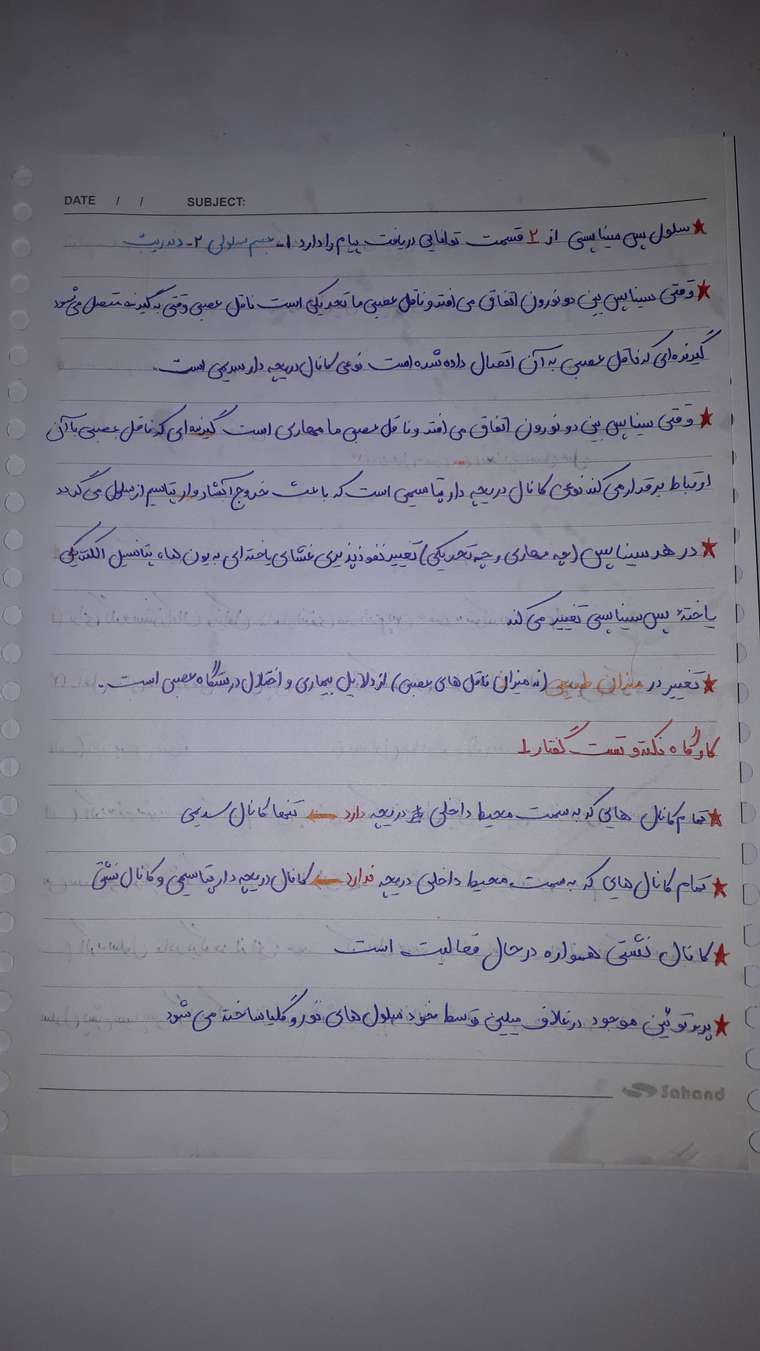 DATE / / SUBJECT:
★ سلول پس سیناپسی از ۲ قسمت توانایی دریافت پیام را دارد ۱- جسم سلولی ۲- دندریت
★ وقتی سیناپس بین دو نورون اتفاق می افتد و ناقل عصبی ما تحریکی است ناقل عصبی وقتی به گیرنده متصل می شود
گیرنده ای که ناقل عصبی به آن اتصال داده شده است نوعی کانال دریچه دار سدیمی است.
★ وقتی سیناپس بین دو نورون اتفاق می افتد و ناقل عصبی ما مهاری است گیرنده ای که ناقل عصبی با آن
ارتباط برقرار می کند نوعی کانال دریچه دار پتاسیمی است که باعث خروج انتشار وار پتاسیم از سلول می گردد
★ در هر سیناپس (چه مهاری و چه تحریکی) تغییر نفوذپذیری غشای یاخته ای به یون ها، پتانسیل الکتریکی
یاختهٔ پس سیناپسی تغییر می کند
★ تغییر در میزان طبیعی (نه میزان ناقل های عصبی) از دلایل بیماری و اختلال دستگاه عصبی است.
کارگاه نکته و تست گفتار ۱
★ تمام کانال هایی که به سمت محیط داخلی دریچه دارد ← تنها کانال سدیمی
★ تمام کانال هایی که به سمت محیط داخلی دریچه ندارد ← کانال دریچه دار پتاسیمی و کانال نشتی
★ کانال نشتی همواره در حال فعالیت است
★ پروتئین موجود در غلاف میلین توسط خود سلول های نوروگلیا ساخته می شود
Sahand